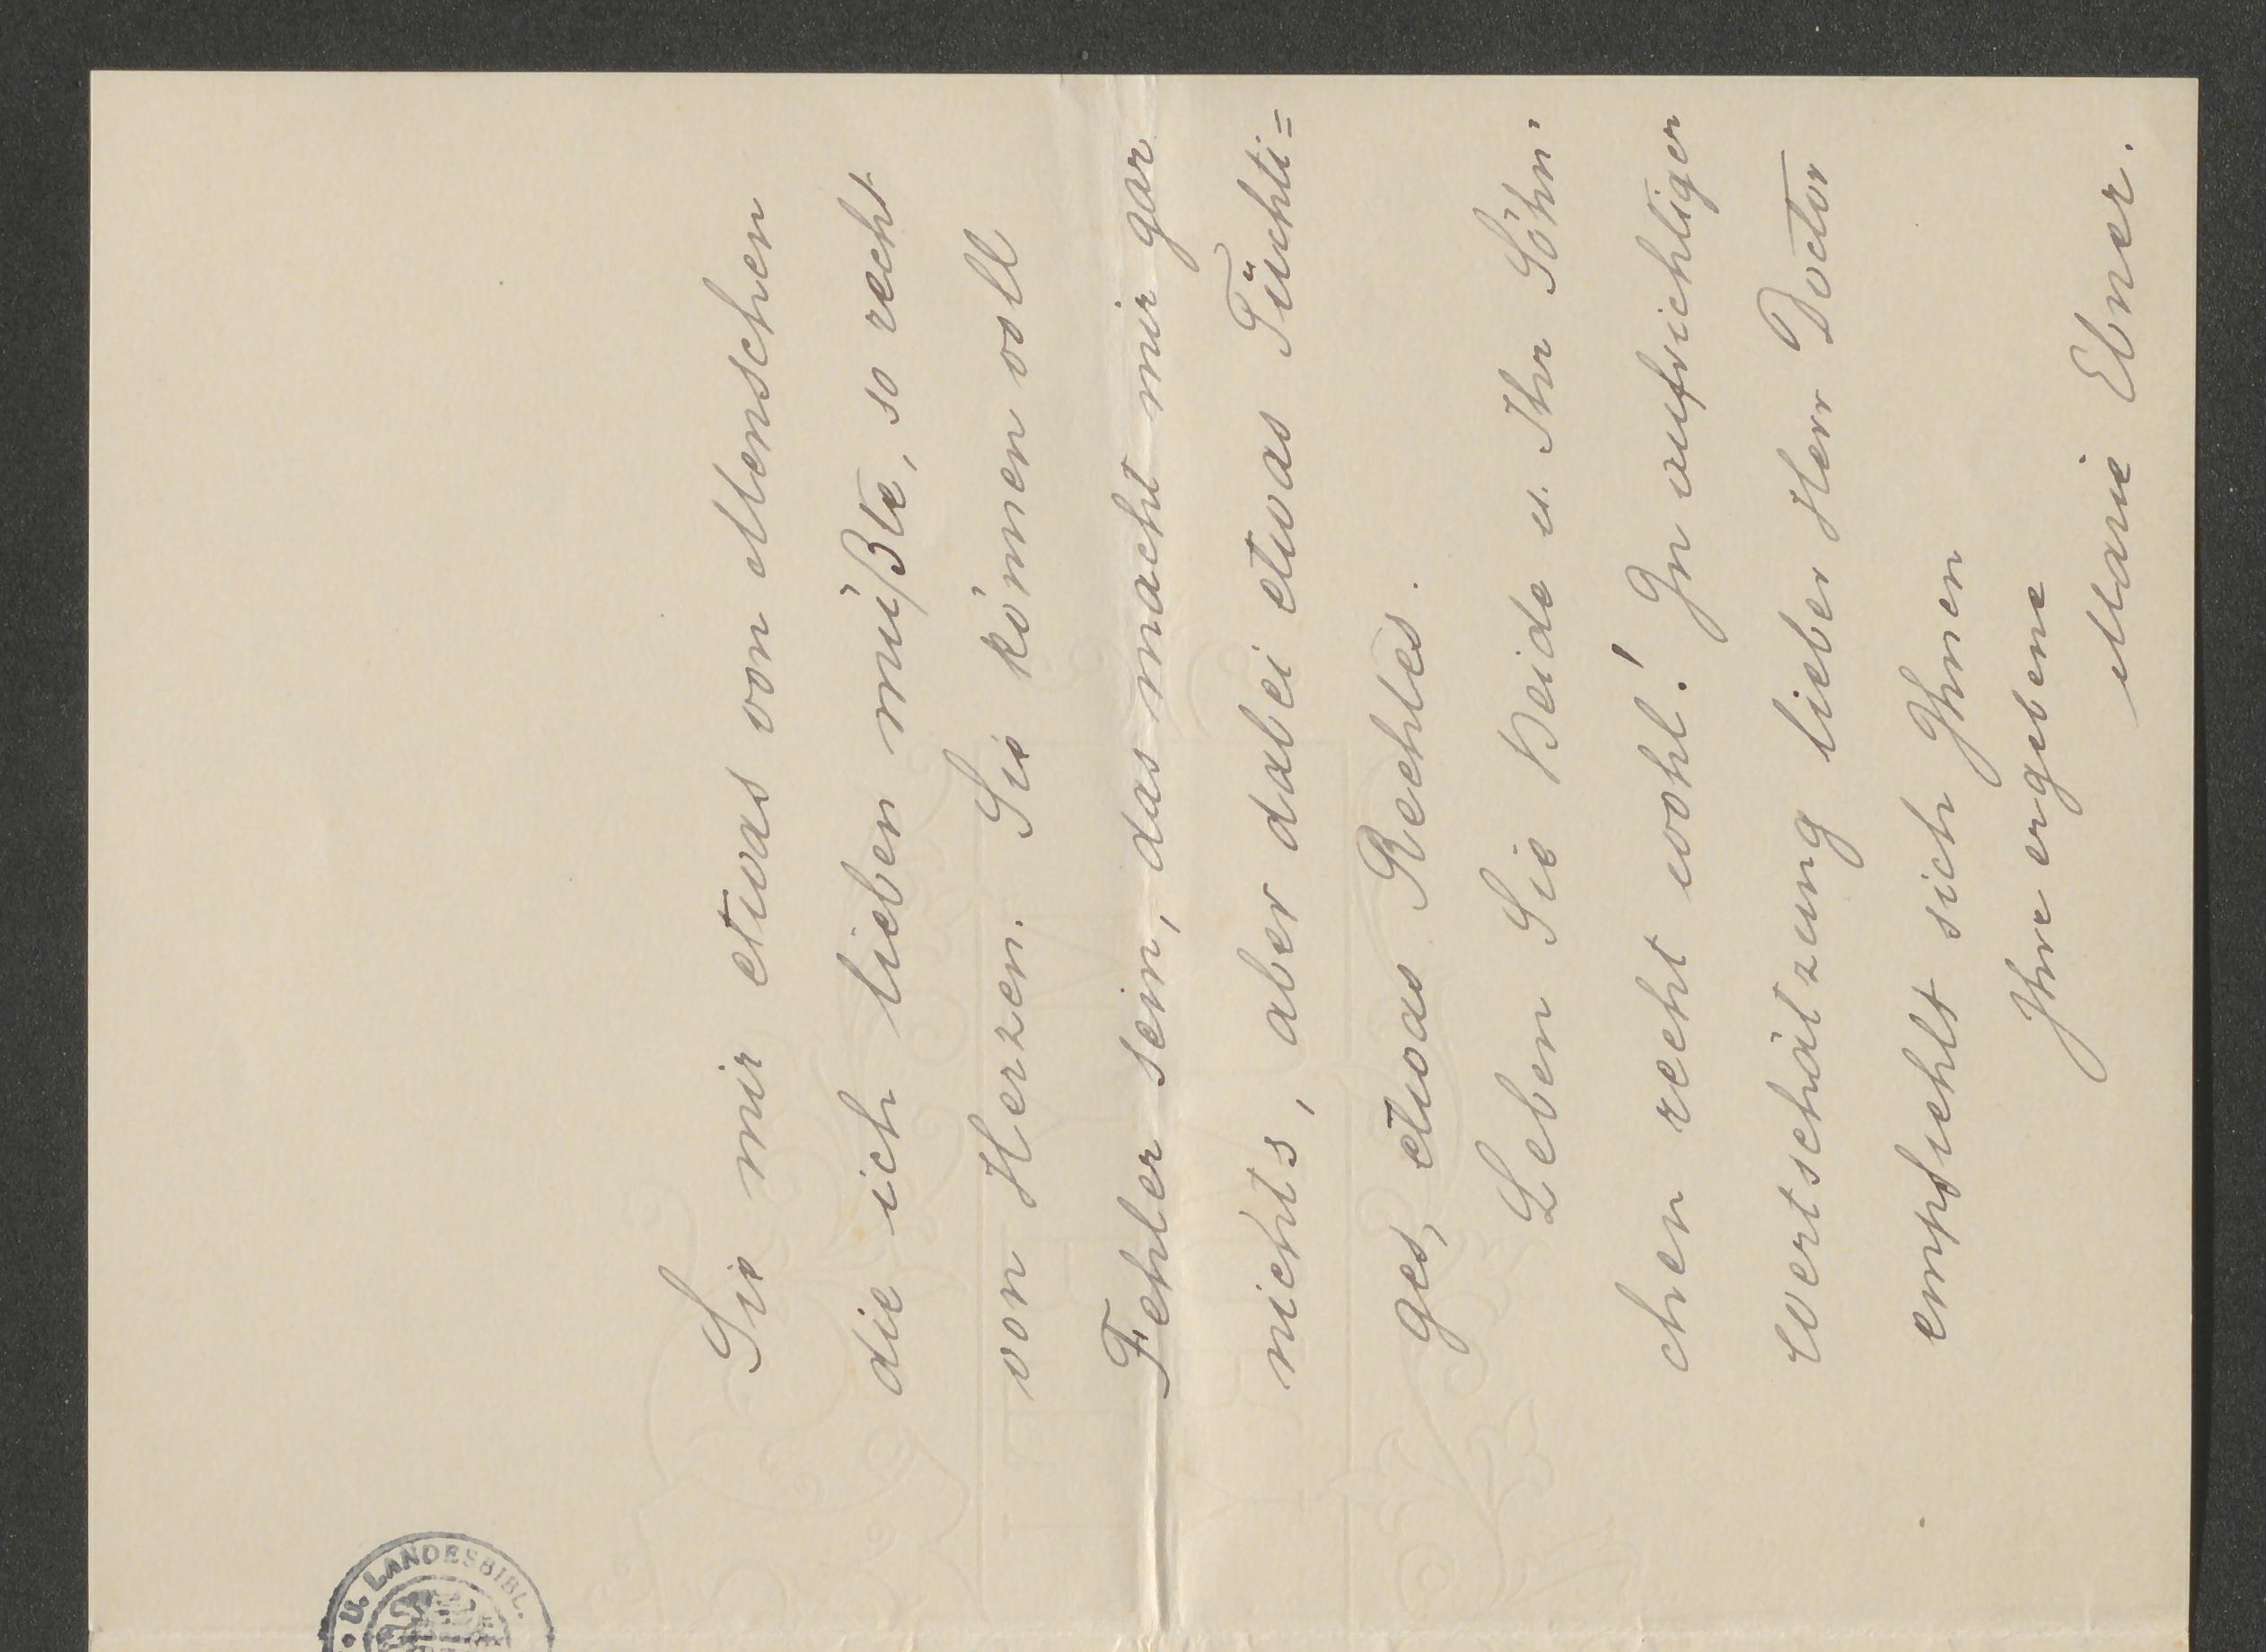 Sie mir etwas von Menschen
die ich lieben müßte, so recht
von Herzen. Sie können voll
Fehler sein, das macht mir gar
nichts, aber dabei etwas Tüchti=
ges, etwas Rechtes.
Leben Sie Beide u. Ihr Söhn.
chen recht wohl! In aufrichtiger
Wertschätzung lieber Herr Doctor
empfiehlt sich Ihnen
Ihre ergebene
Marie Ebner.
U. LANDESBIBL.